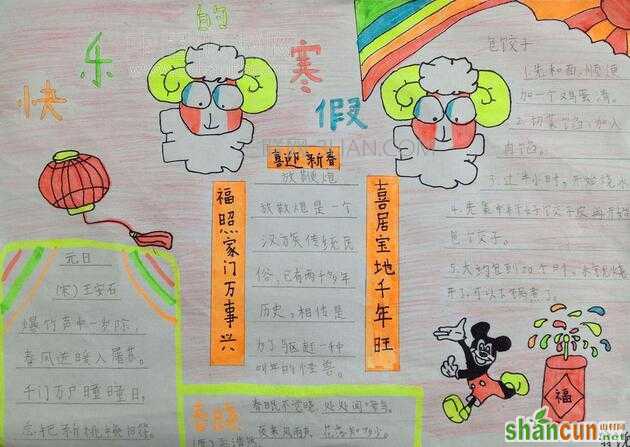 快乐的寒假
包饺子
1.先和面,顺便
加一个鸡蛋清。
2.切菜馅,加入
肉馅。
3.过半小时,开始烧水
4.
包饺子。
5.大约包到20个时,水
开了,可以下锅煮了。
喜迎新春
福照家门万事兴
喜居宝地千年旺
放鞭炮
放鞭炮是一个
汉族传统民
俗,已有两千多年
历史。相传是
为了驱赶一种
叫年的怪兽。
元日
(宋)王安石
爆竹声中一岁除,
春风送暖入屠苏。
千门万户瞳瞳日,
总把新桃换旧符。
春晓
春眠不觉晓,处处闻啼鸟。
夜来风雨声,花落知多少。
福
shancun